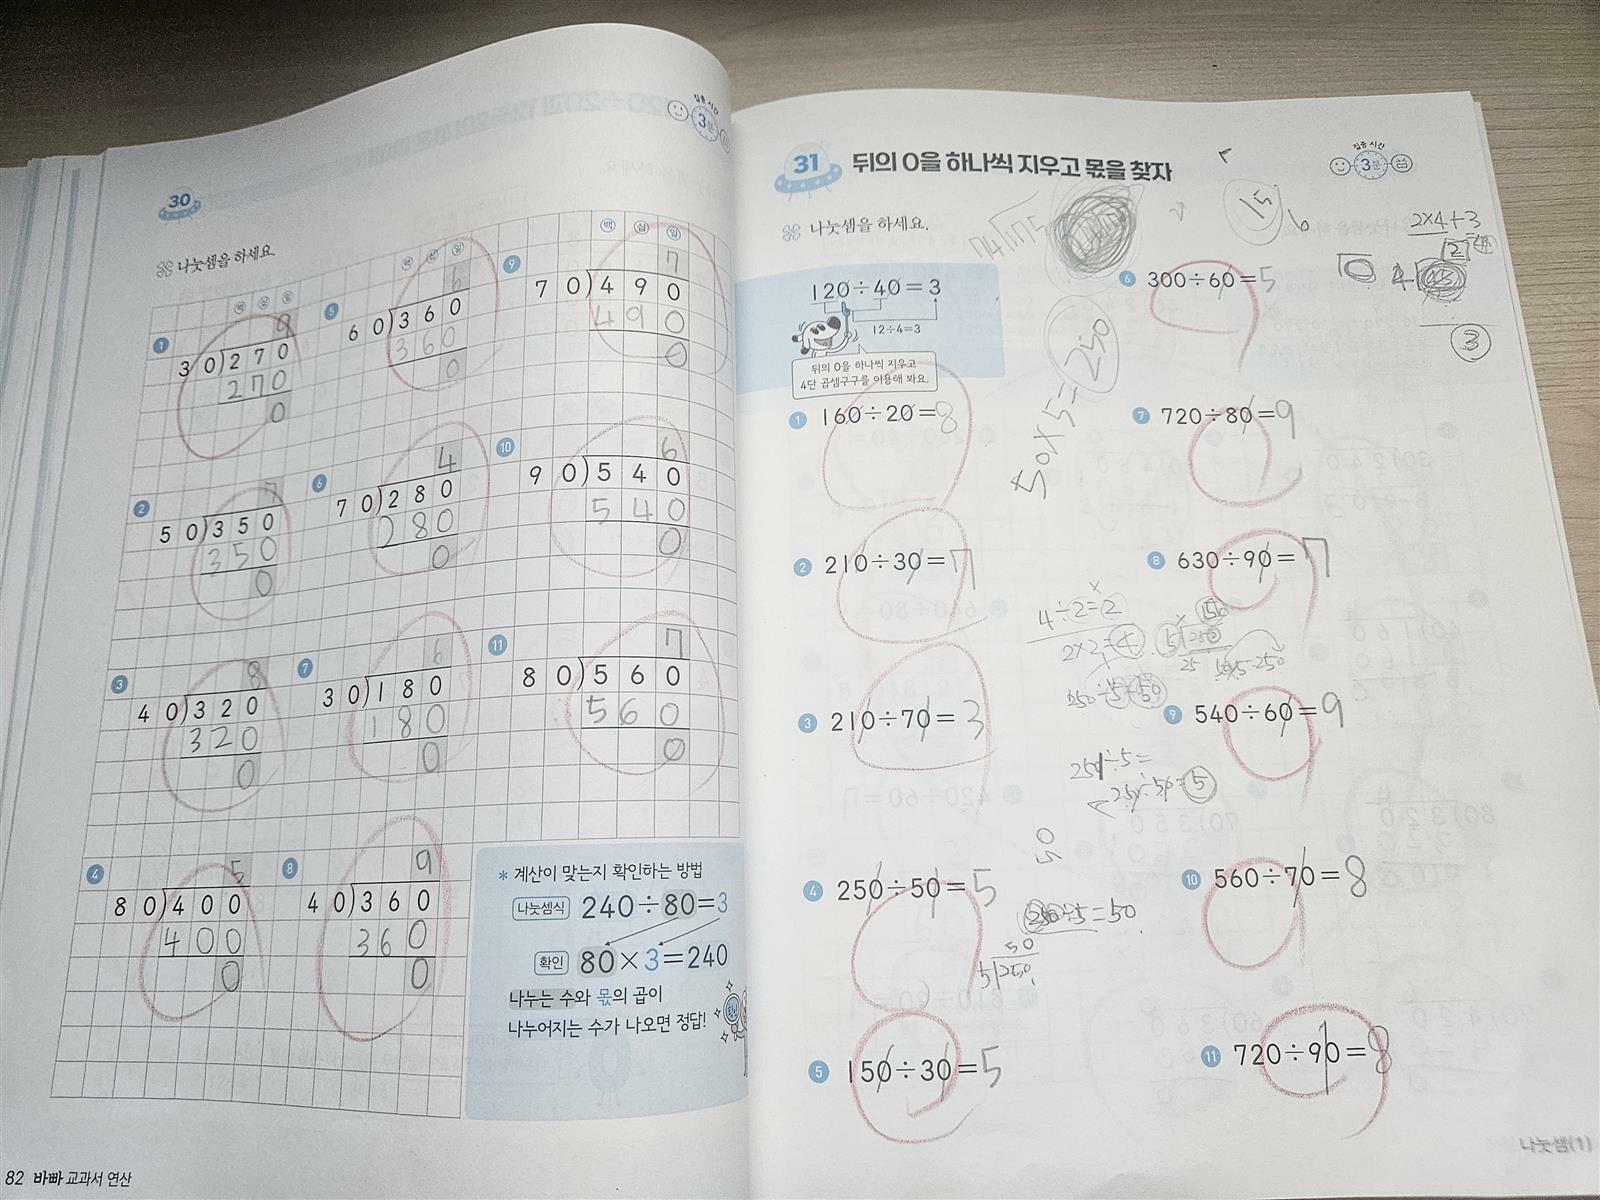 집중 시간
3분
30
나눗셈을 하세요.
백 십 일
1
9
30)270
270
0
2
7
50)350
350
0
3
8
40)320
320
0
4
5
80)400
400
0
백 십 일
5
6
60)360
360
0
6
4
70)280
280
0
7
6
30)180
180
0
8
9
40)360
360
0
백 십 일
9
7
70)490
490
0
10
6
90)540
540
0
11
7
80)560
560
0
* 계산이 맞는지 확인하는 방법
나눗셈식 240÷80=3
확인 80×3=240
나누는 수와 몫의 곱이
나누어지는 수가 나오면 정답!
82 바빠 교과서 연산
31 뒤의 0을 하나씩 지우고 몫을 찾자
집중 시간
3분
나눗셈을 하세요.
120÷40=3
12÷4=3
뒤의 0을 하나씩 지우고
4단 곱셈구구를 이용해 봐요.
1 160÷20=8
2 210÷30=7
3 210÷70=3
4 250÷50=5
5 150÷30=5
6 300÷60=5
7 720÷80=9
8 630÷90=7
9 540÷60=9
10 560÷70=8
11 720÷90=8
15
6
2×4+3
3
50×5=250
4÷2=2
2×2=4
250÷5=50
250÷5=
250÷50=5
50
250÷5=50
50
5)250
나눗셈(1)